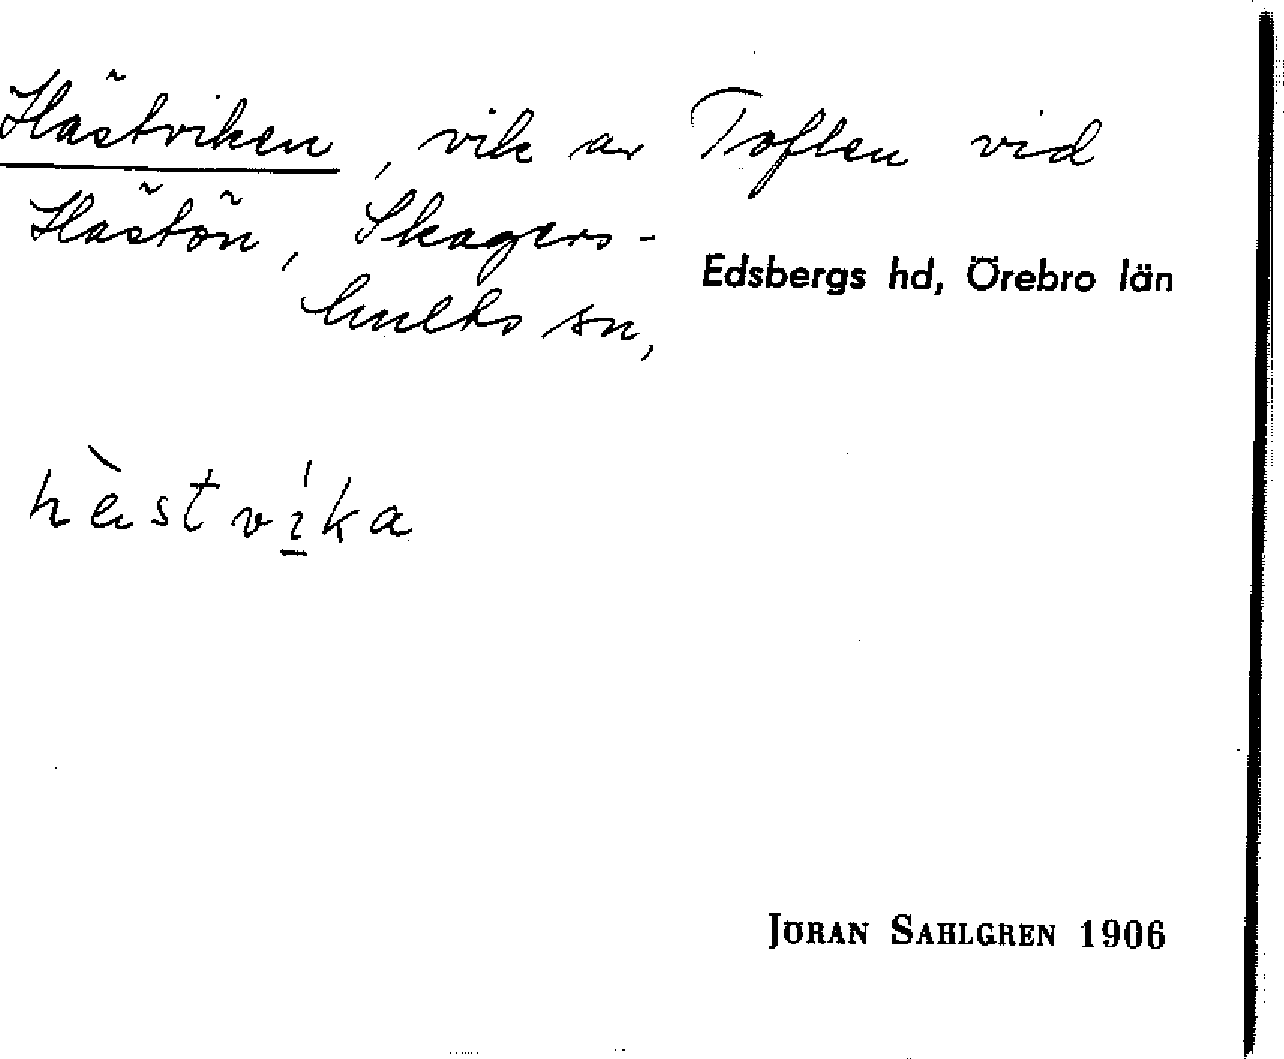 Hästviken, vik av Toflen vid
Hästön, Skagers-
hults sn,
Edsbergs hd, Örebro län
hästvíka
JÖRAN SAHLGREN 1906